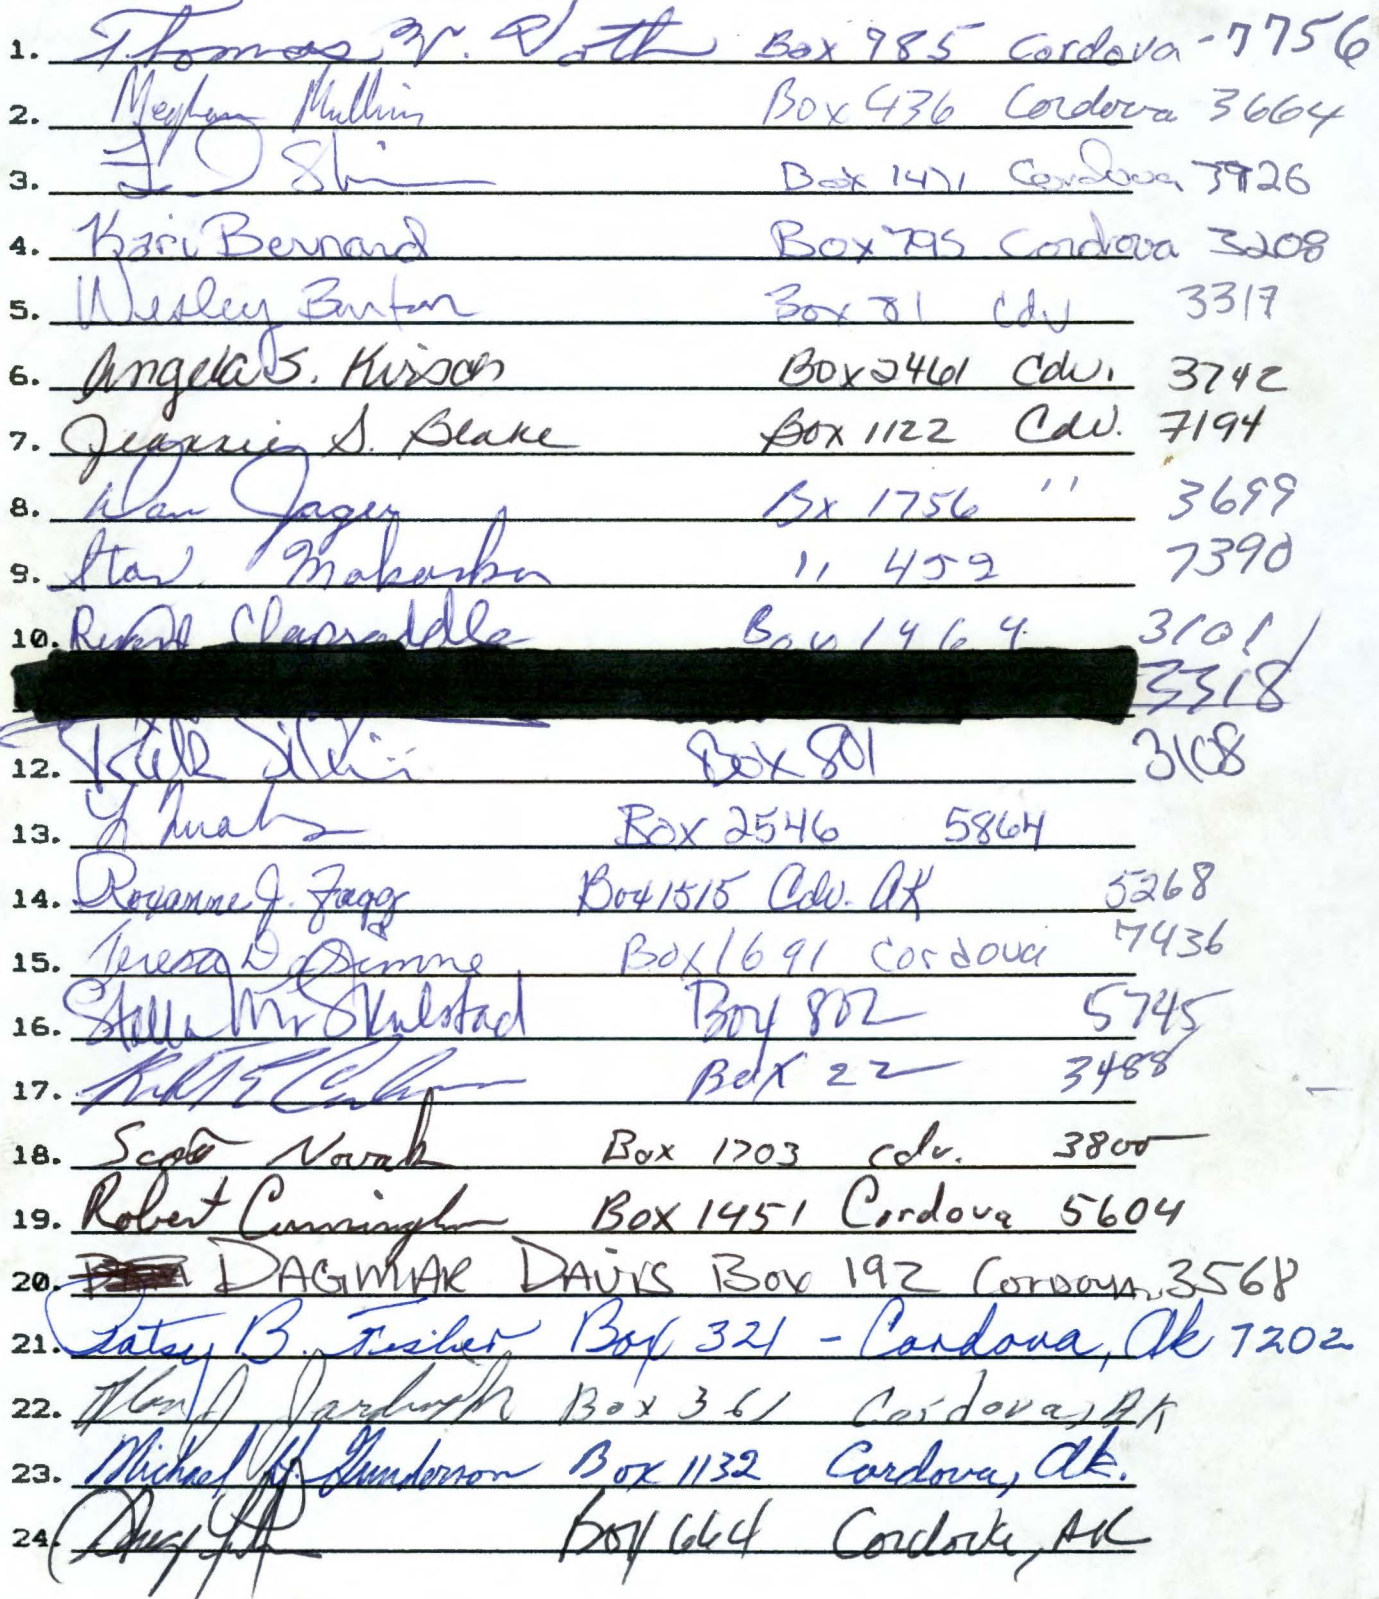 1. Thomas Box 985 Cordova - 7756
2. Meghan Mullins Box 436 Cordova 3664
3. Box 1471 Cordova 3926
4. Kari Bernard Box 795 Cordova 3208
5. Wesley Burton Box 81 Cdv 3317
6. Angela S. Box 2461 Cdv. 3742
7. Jeannie S. Blake Box 1122 Cdv. 7194
8. Dan Jager Bx 1756 '' 3699
9. Stan Makarka '' 459 7390
10. Box 1464 3101
3318
12. Box 801 3108
13. Box 2546 5864
14. Roxanne J. Fagg Box 1515 Cdv. AK 5268
15. Teresa Box 1691 Cordova 7436
16. Stella M. Skulstad Box 802 5745
17. Box 22 3488
18. Scott Novak Box 1703 cdv. 3800
19. Robert Cunningham Box 1451 Cordova 5604
20. DAGMAR DAVIS Box 192 Cordova 3568
21. Patsy B. Fisher Box 321 - Cordova, Ak 7202
22. Box 361 Cordova, AK
23. Michael Gunderson Box 1132 Cordova, Ak.
24. Box 664 Cordova, AK